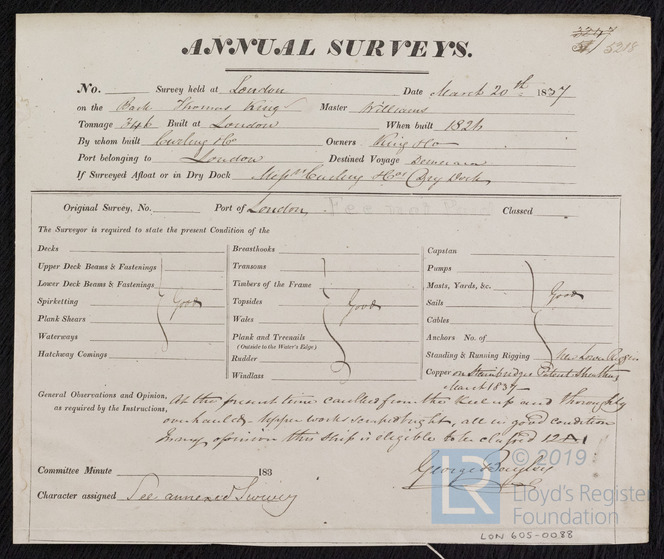 3247
5218
ANNUAL SURVEYS.
No. Survey held at London Date March 20th 1837
on the Bark Thomas King Master Williams
Tonnage 346 Built at London When built 1826
By whom built Curling & Co Owners King & Co
Port belonging to London Destined Voyage Demerara
If Surveyed Afloat or in Dry Dock Messrs Curling & Cos Dock
Original Survey, No. Port of London Classed
The Surveyor is required to state the present Condition of the
Decks
Upper Deck Beams & Fastenings
Lower Deck Beams & Fastenings
Spirketting Good
Plank Shears
Waterways
Hatchway Comings
Breasthooks
Transoms
Timbers of the Frame
Topsides Good
Wales
Plank and Treenails
(Outside to the Water's Edge)
Rudder
Windlass
Capstan
Pumps
Masts, Yards, &c. Good
Sails
Cables
Anchors No. of
Standing & Running Rigging New Lower Rigging
Copper on Patent Sheathing
March 1837
General Observations and Opinion,
as required by the Instructions,
At the present time caulked from the Keel up and thoroughly
overhauled. Upper works scraped bright, all in good condition
In my opinion this ship is eligible to be classed 12 A1
George Bayley
Committee Minute 183
Character assigned See annexed Survey
LR © 2019
Lloyd's Register
Foundation
LON 605-0088